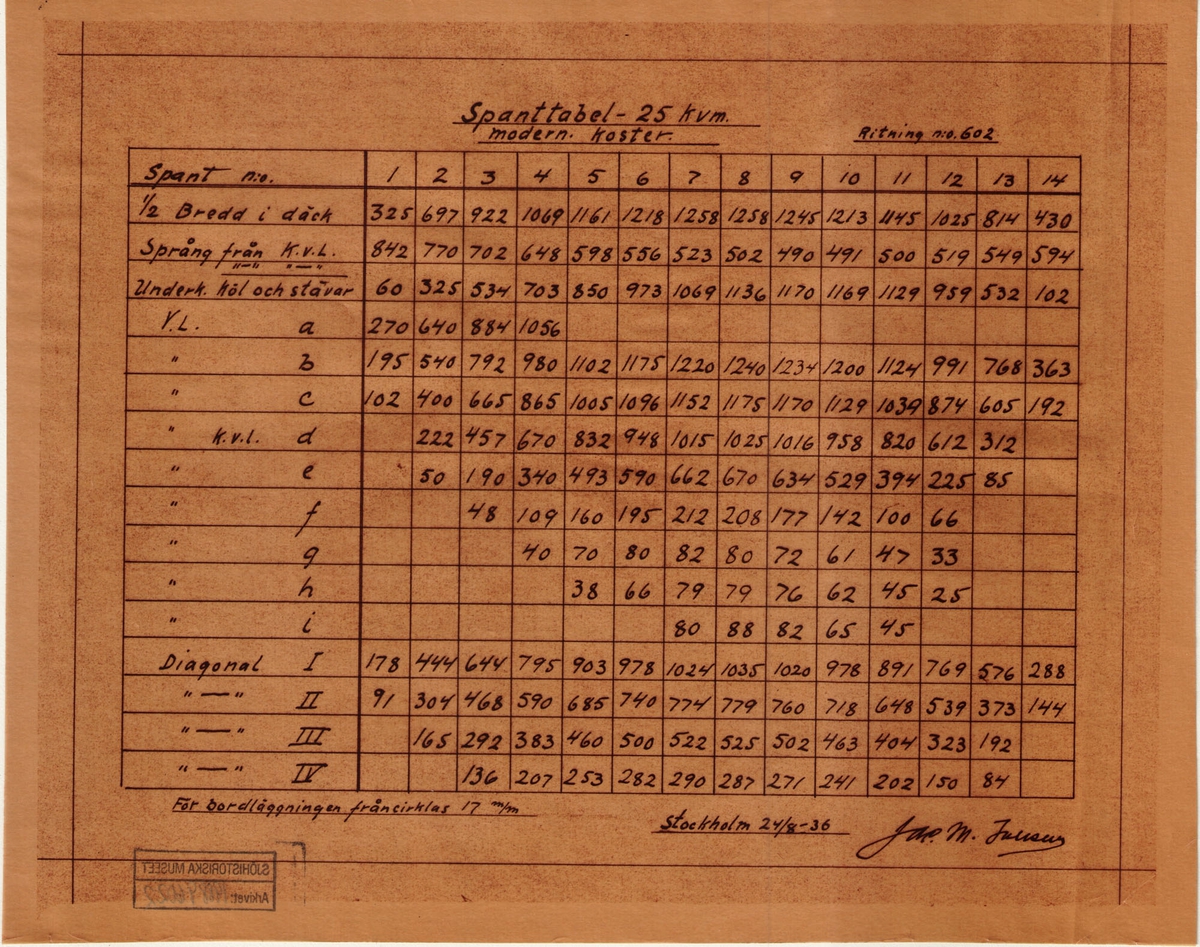 Spanttabel - 25 kvm.
modern. koster.
Ritning n:o. 602
Spant n:o. 1 2 3 4 5 6 7 8 9 10 11 12 13 14
1/2 Bredd i däck 325 697 922 1069 1161 1218 1258 1258 1245 1213 1145 1025 814 430
Språng från K.v.L. 842 770 702 648 598 556 523 502 490 491 500 519 549 594
"—" "—"
Underk. Köl och stävar 60 325 534 703 850 973 1069 1136 1170 1169 1129 959 532 102
V.L. a 270 640 884 1056
" b 195 540 792 980 1102 1175 1220 1240 1234 1200 1124 991 768 363
" c 102 400 665 865 1005 1096 1152 1175 1170 1129 1039 874 605 192
" K.v.l. d 222 457 670 832 948 1015 1025 1016 958 820 612 312
" e 50 190 340 493 590 662 670 634 529 394 225 85
" f 48 109 160 195 212 208 177 142 100 66
" g 40 70 80 82 80 72 61 47 33
" h 38 66 79 79 76 62 45 25
" i 80 88 82 65 45
Diagonal I 178 444 644 795 903 978 1024 1035 1020 978 891 769 576 288
"—" II 91 304 468 590 685 740 774 779 760 718 648 539 373 144
"—" III 165 292 383 460 500 522 525 502 463 404 323 192
"—" IV 136 207 253 282 290 287 271 241 202 150 84
För bordläggningen fråncirklas 17 m/m
Stockholm 24/8-36
Jac. M. Iversen
SJÖHISTORISKA MUSEET
Arkivet: